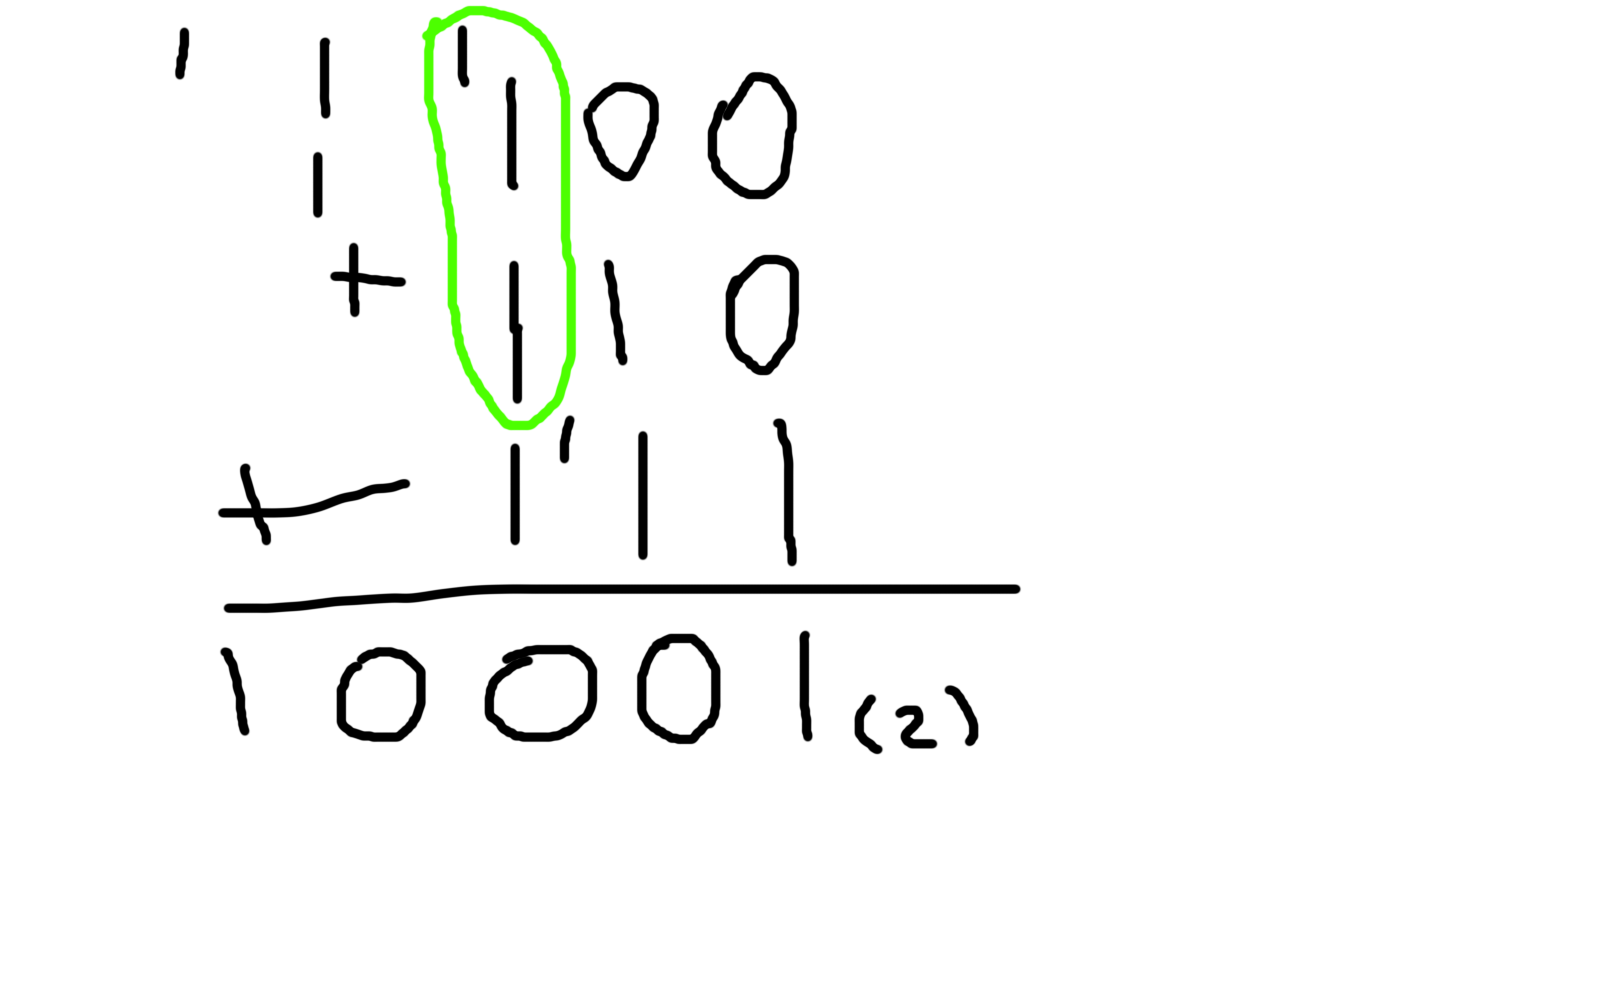 1 1 1
1 0 0
1
+ 1 1 0
1
+ 1 1 1
1 0 0 0 1 (2)